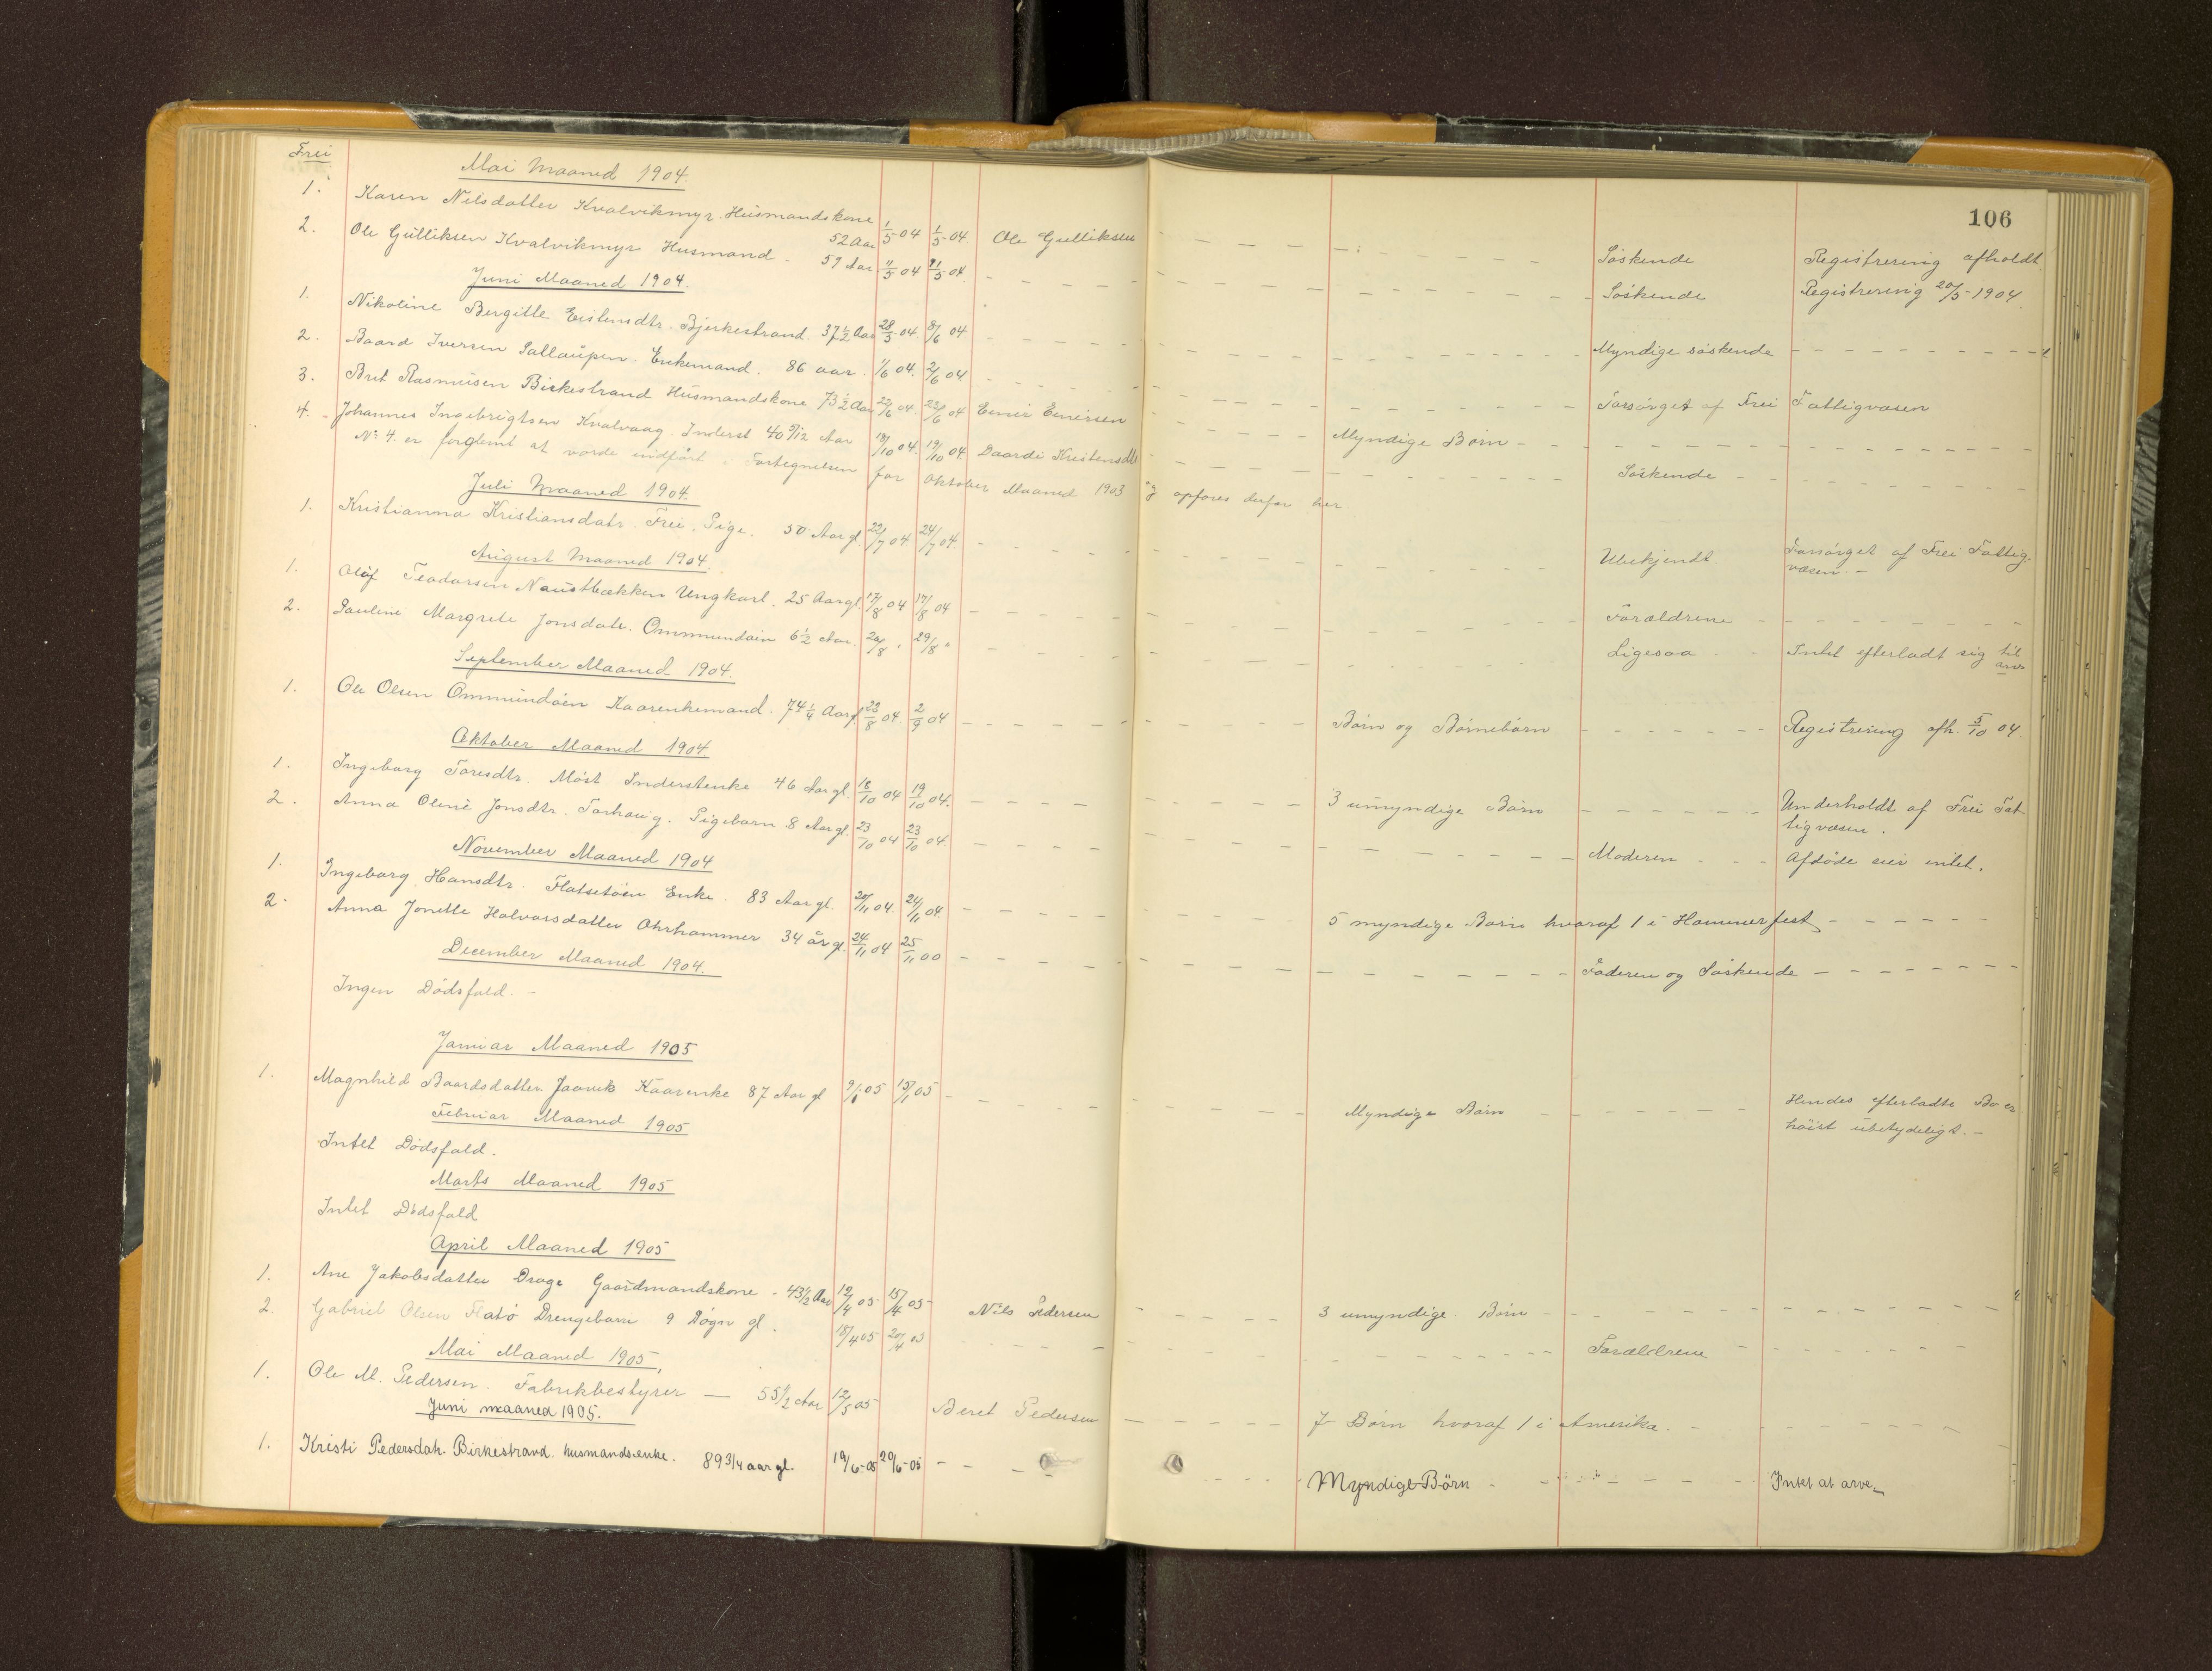 106
Frei
Mai Maaned 1904.
1. Karen Nilsdatter Kvalvikmyr. Husmandskone 52 Aar 1/5 04 1/5 04. Ole Gulliksen - - - Söskende Registrering afholdt.
2. Ole Gulliksen Kvalvikmyr Husmand - 59 Aar 11/5 04 - - - Söskende Registrering 20/5-1904.
Juni Maaned 1904.
1. Nikoline Bergitte Eistensdtr. Bjerkestrand. 37 1/2 Aar 28/5 04. 8/6 04. - - - Myndige söskende - - -
2. Baard Iversen Enkemand. 86 aar. 1/6 04. 2/6 04 - - - Forsörget af Frei Fattigvæsen
3. Brit Rasmusen Birkestrand Husmandskone 73 1/2 Aar 22/6 04. 23/6 04 - - - Myndige Börn - - -
4. Johannes Ingebrigtsen Kvalvaag. Inderst 40 9/12 Aar 19/10 04. Kristensdtr - - - Söskende - - -
No 4. er forglemt at vorde indfört i Fortegnelsen for Oktober Maaned 1903 og opföres derfor her
Juli Maaned 1904.
1. Kristianna Kristiansdatr. Frei. Pige. 50 Aar gl. 22/7 04. 24/7 04. - - - Ubekjendt. Forsörget af Frei Fattig-
væsen. -
August Maaned 1904.
1. Olaf Teodorsen Naustbækken Ungkarl. 25 Aar gl. 17/8 04 17/8 04 - - - Forældrene - - -
2. Pauline Margrete Jonsdatr. Ommundöin 6 1/2 Aar. 20/8 " 29/8 " - - - Ligesaa - Intet efterladt sig til
arv
September Maaned 1904.
1. Ole Olsen Ommundöin Kaarenkemand. 74 1/4 Aar gl 23/8 04. 2/9 04 - - - Börn og Börnebörn - - - Registrering afh. 5/10 04.
Oktober Maaned 1904
1. Ingeborg Toresdtr. Möst Inderstenke 46 Aar gl. 16/10 04 19/10 04. - - - 3 umyndige Börn - - - Underholdt af Frei Fat-
tigvæsen.
2. Anna Oline Jonsdtr. Torhaug. Pigebarn 8 Aar gl. 23/10 04 23/10 04. - - - Moderen - - - Afdöde eier intet.
November Maaned 1904
1. Ingeborg Hansdtr. Flatsetöin Enke. 83 Aar gl. 20/11 04. 24/11 04. - - - 5 myndige Börn hvoraf 1 i Hammerfest - - -
2. Anna Jonette Halvorsdatter Ohrhammer 34 år gl. 24/11 04 25/11 00 - - - Faderen og Söskende - - -
December Maaned 1904.
Ingen Dödsfald. -
Januar Maaned 1905
1. Magnhild Baardsdatter Kaarenke 87 Aar gl 9/1 05 15/1 05 - - - Myndige Börn - - - Hendes efterladte Bo er
höist ubetydeligt. -
Februar Maaned 1905
Intet Dödsfald.
Marts Maaned 1905
Intet Dödsfald
April Maaned 1905
1. Ane Jakobsdatter Drage Gaardmandskone - 43 1/2 Aar 12/4 05 15/4 05 Nils Pedersen - - - 3 umyndige Börn - - -
2. Gabriel Olsen Flatö Drengebarn 9 Dögn gl. 18/4 05 20/4 05 - - - Forældrene - - -
Mai Maaned 1905.
1. Ole M. Pedersen. Fabrikbestyrer — 55 1/2 Aar 12/5 05 Beret Pedersen - - - 7 Börn hvoraf 1 i Amerika. - - -
Juni maaned 1905.
1. Kristi Pedersdatr. Birkestrand. husmandsenke. 89 3/4 aar gl. 19/6-05 20/6-05 - - - Myndige Börn - - - Intet at arve.